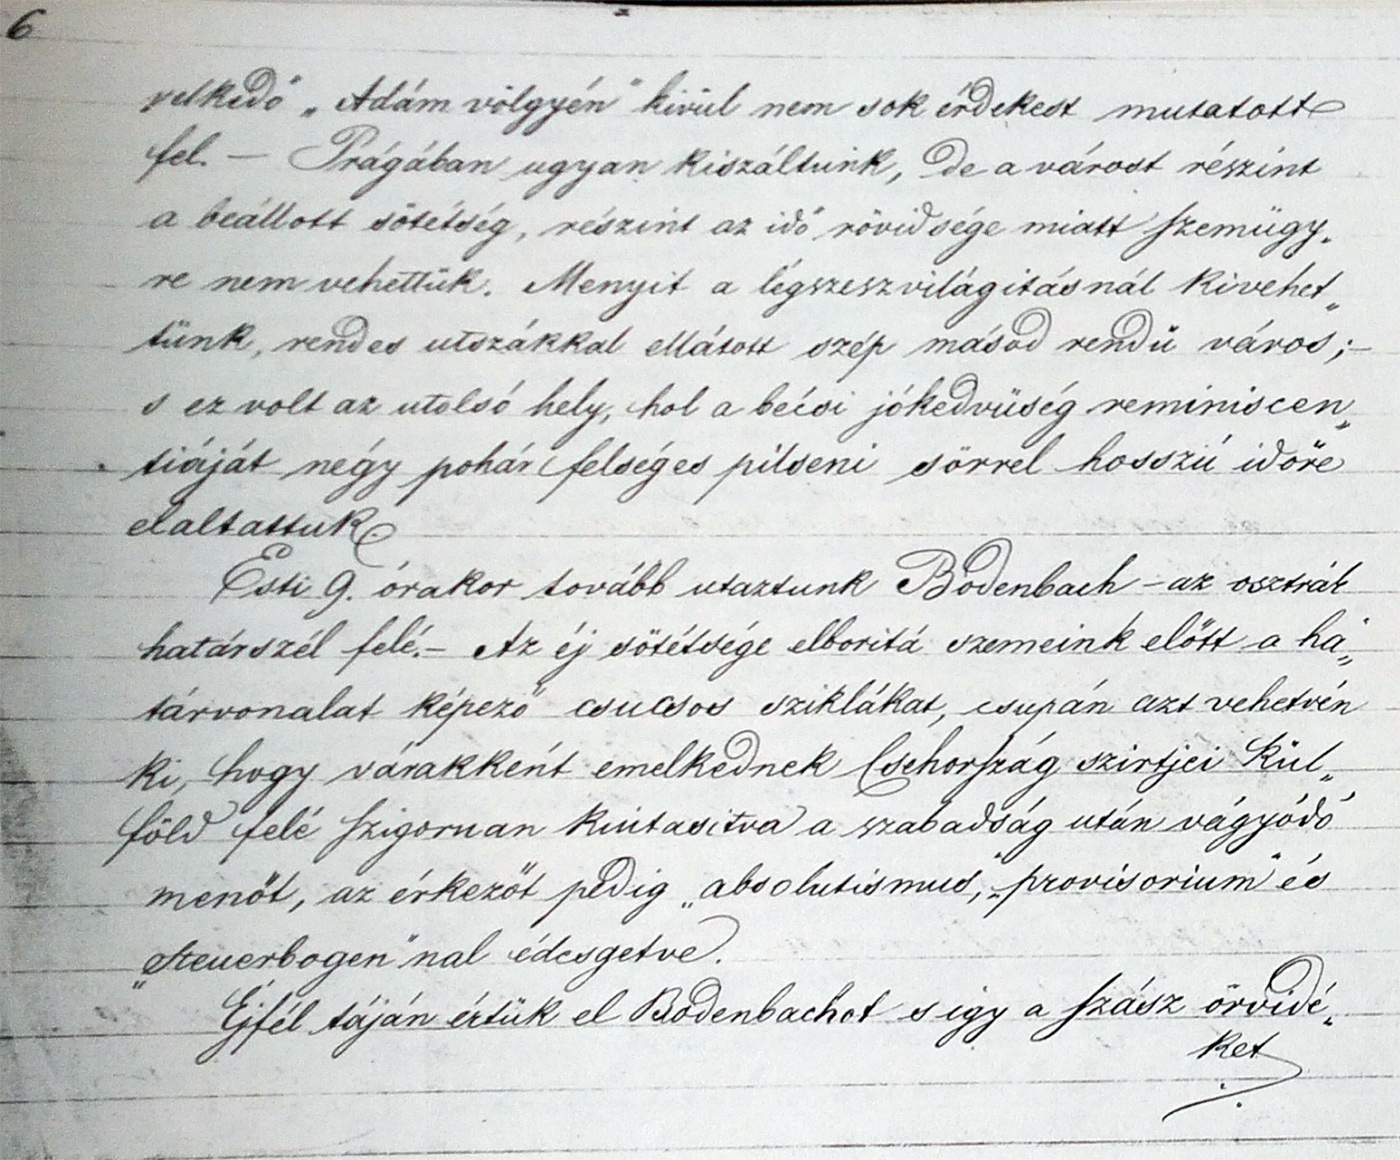 6
velkedő" „Adám völgyén" kivül nem sok érdekest mutatott
fel. — Prágában ugyan kiszáltunk, de a várost részint
a beállott sötétség, részint az idő rövidsége miatt szemügy„
re nem vehettük. Menyit a légszeszvilágitásnál kivehet„
tünk, rendes utszákkal ellátott szép másod rendű város; —
s ez volt az utolsó hely, hol a bécsi jókedvüség reminiscen„
tiáját négy pohár felséges pilseni sörrel hosszú időre
elaltattuk.
Esti 9. órakor tovább utaztunk Bodenbach – az osztrák
határszél felé. – Az éj sötétsége elboritá szemeink előtt a ha„
tárvonalat képező csucsos sziklákat, csupán azt vehetvén
ki, hogy várakként emelkednek Csehország szirtjei kül„
föld felé szigoruan kiutasitva a szabadság után vágyódó
menőt, az érkezőt pedig „absolutismus", „provisorium" és
„Steuerbogen"nal édesgetve.
Éjfél táján értük el Bodenbachot s igy a szász örvidé„
ket